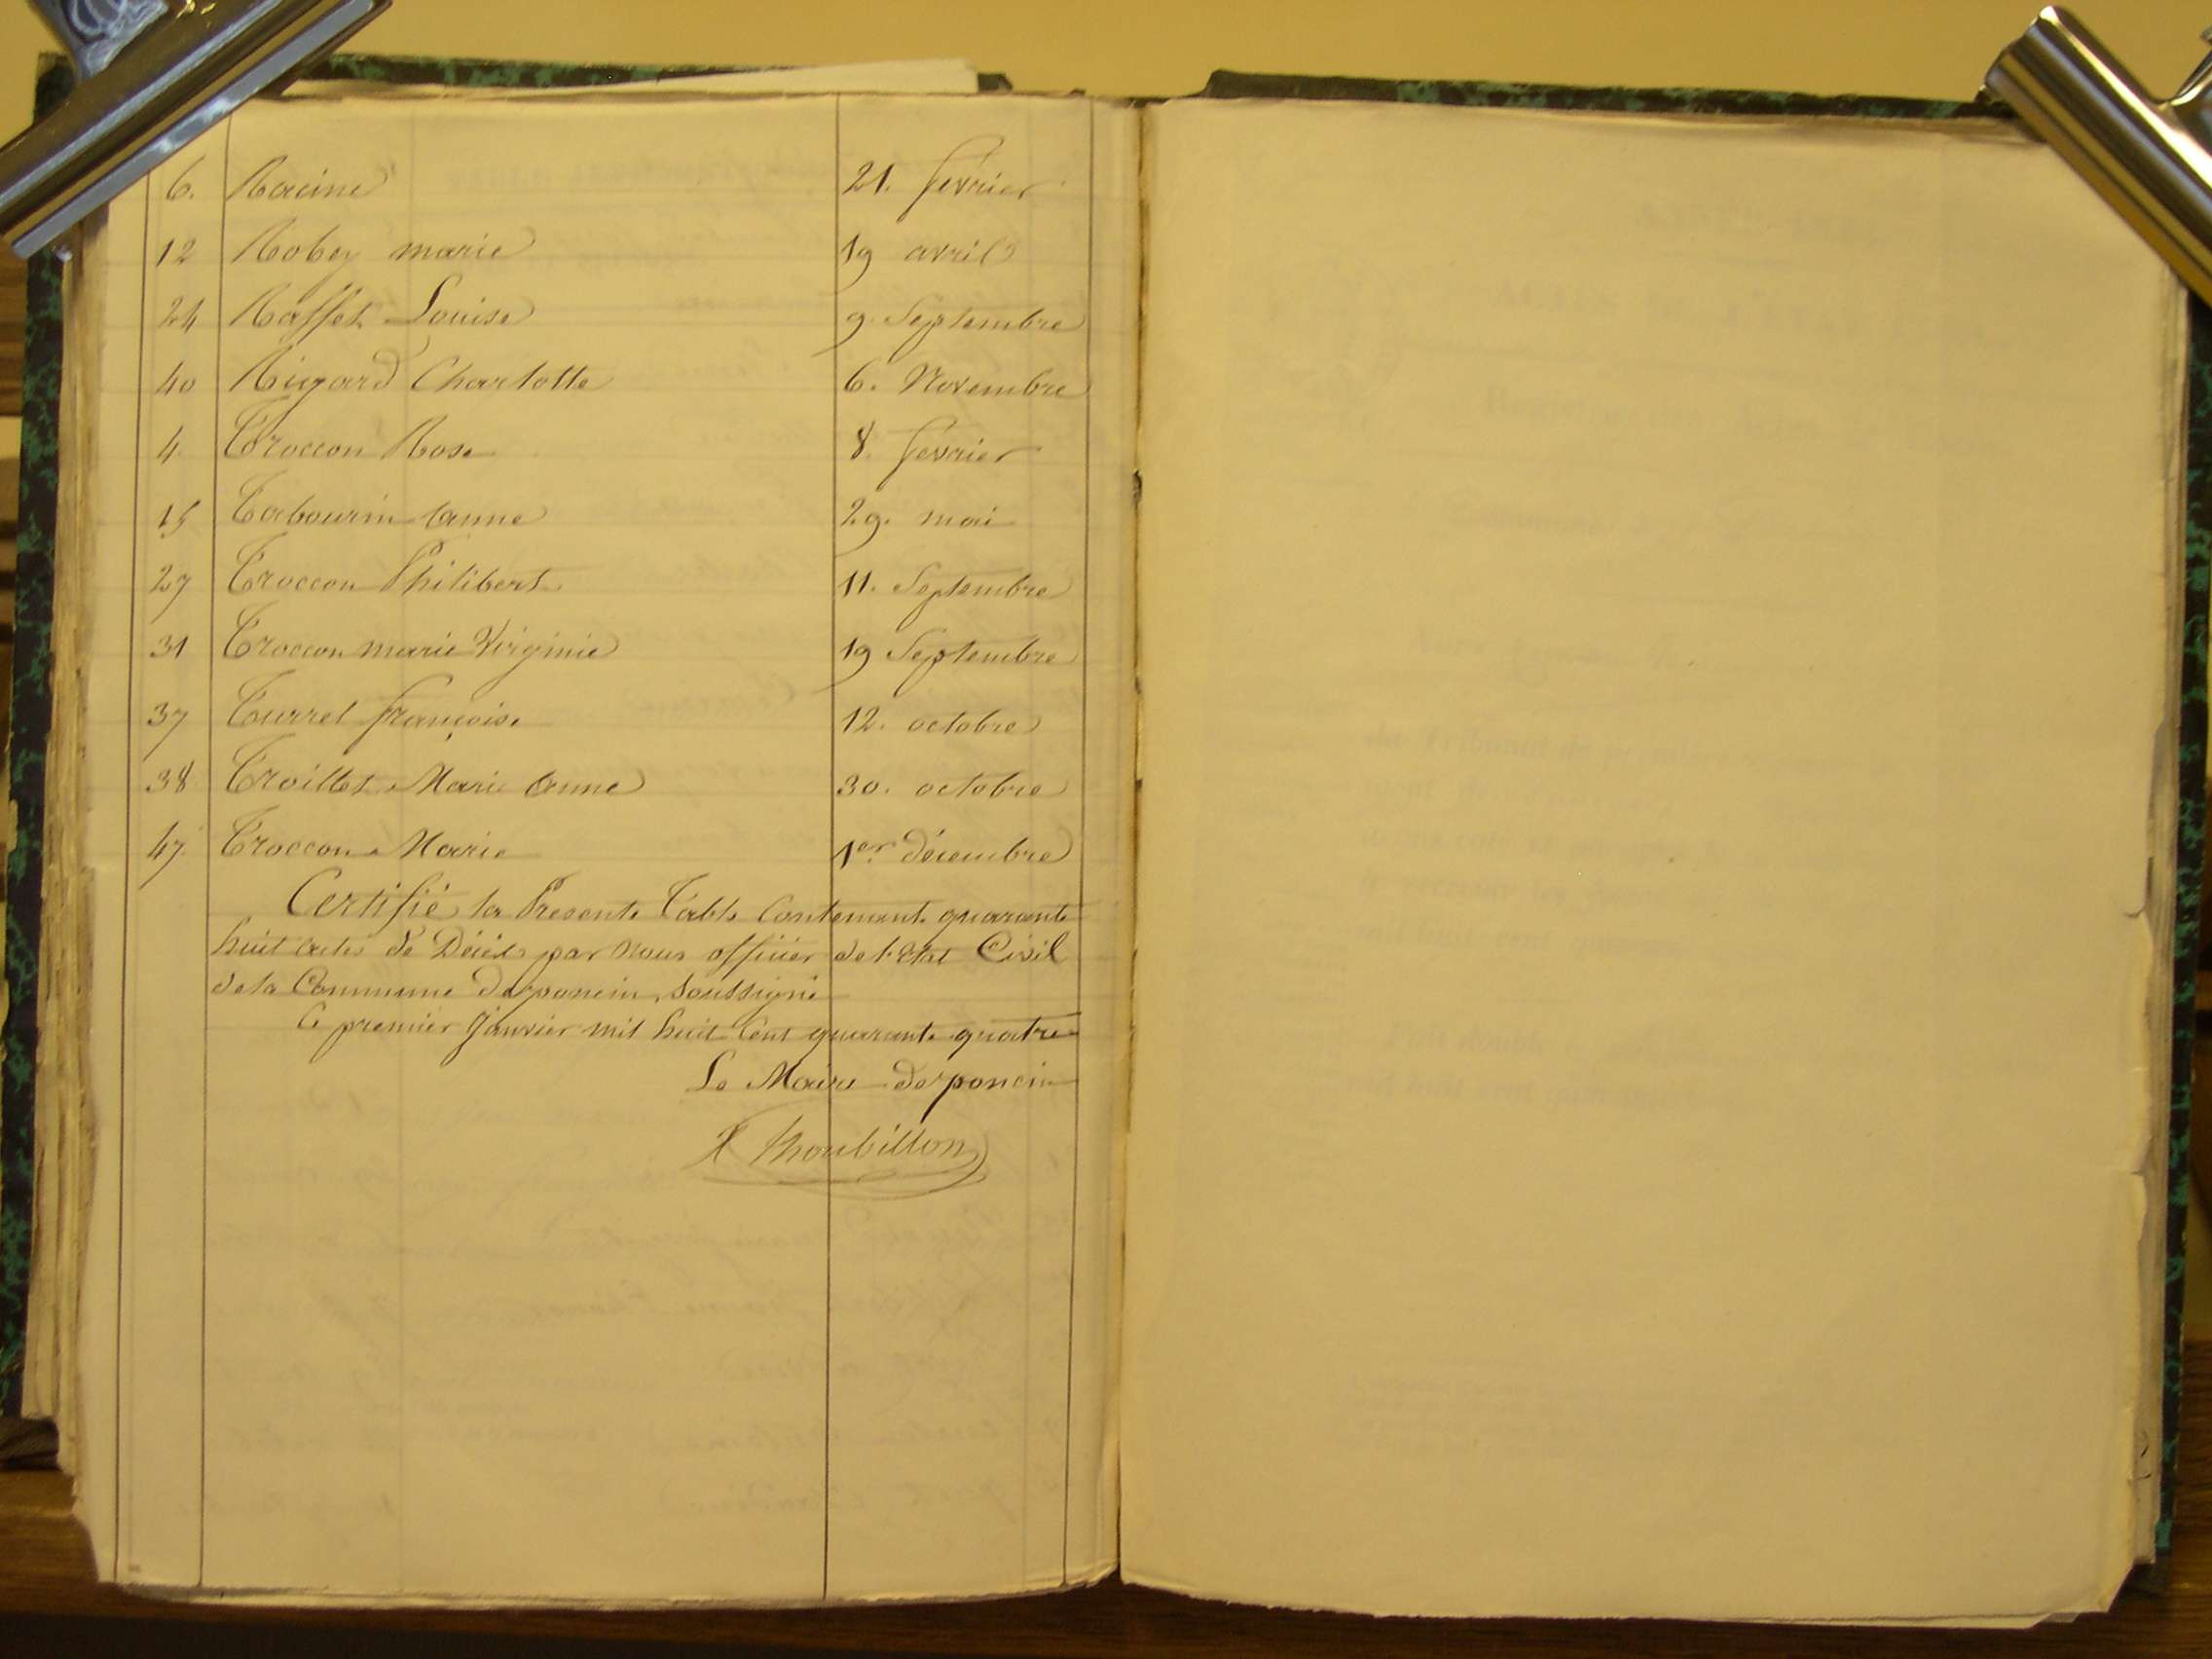 6. Racine 21. février
12 Robey marie 19 avril
24 Raffet Louise 9. Septembre
40 Rigard Charlotte 6. Novembre
4 Troccon Rose 8. fevrier
15 Tabourin Anne 29. mai
27 Troccon Philibert 11. Septembre
31 Troccon marie Virginie 19 Septembre
37 Turrel françoise 12. octobre
38 Troillet Marie Anne 30. octobre
47. Troccon Marie 1er décembre
Certifié la Presente Table Contenant quarante
huit actes de Décès par nous officier de l'Etat Civil
de la Commune de poncin, soussigné
Ce premier Janvier mil huit Cent quarante quatre
Le Maire de poncin
Thoubillon